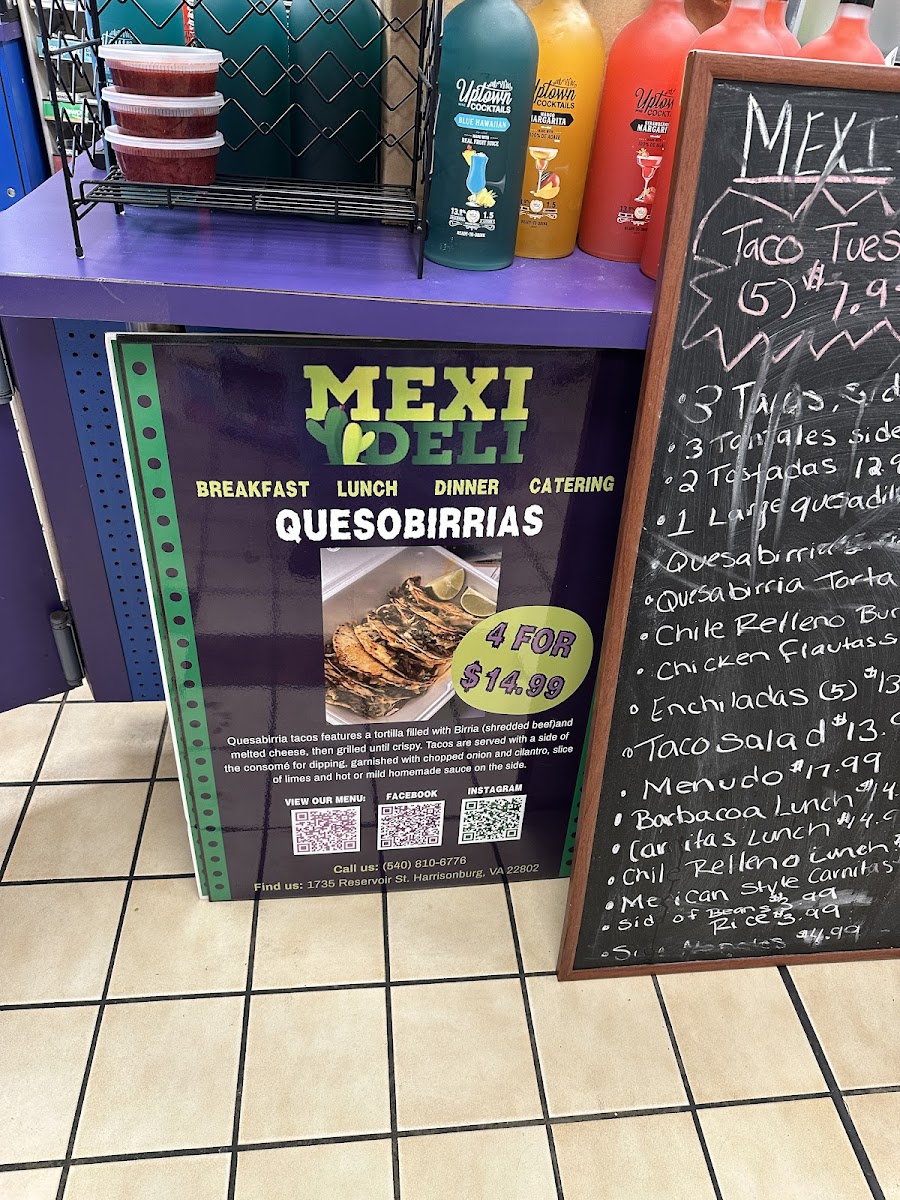 Uptown
COCKTAILS
BLUE HAWAIIAN
MADE WITH
REAL FRUIT JUICE
13.9%
1.5
READY-TO-DRINK
Uptown
COCKTAILS
MANGO
MARGARITA
Uptown
STRAWBERRY
MARGARI
MEXI
DELI
BREAKFAST LUNCH DINNER CATERING
QUESOBIRRIAS
4 FOR
$14.99
Quesabirria tacos features a tortilla filled with Birria (shredded beef)and
melted cheese, then grilled until crispy. Tacos are served with a side of
the consomé for dipping, garnished with chopped onion and cilantro, slice
of limes and hot or mild homemade sauce on the side.
VIEW OUR MENU: FACEBOOK INSTAGRAM
Call us: (540) 810-6776
Find us: 1735 Reservoir St. Harrisonburg, VA 22802
MEXI
Taco Tues
(5) $7.9
• 3 Tacos, sid
• 3 Tamales side
• 2 Tostadas 12.9
• 1 Large quesadil
• Quesabirria
• Quesabirria Torta
• Chile Relleno Bur
• Chicken Flautas
• Enchiladas (5) $13
• Taco Salad $13.9
• Menudo $17.99
• Barbacoa Lunch $14.
• Car itas Lunch $14.9
• Chil Relleno Lunch $
• Me ican Style Carnitas
• Sid of Beans $3.99
Rice $3.99
$4.99